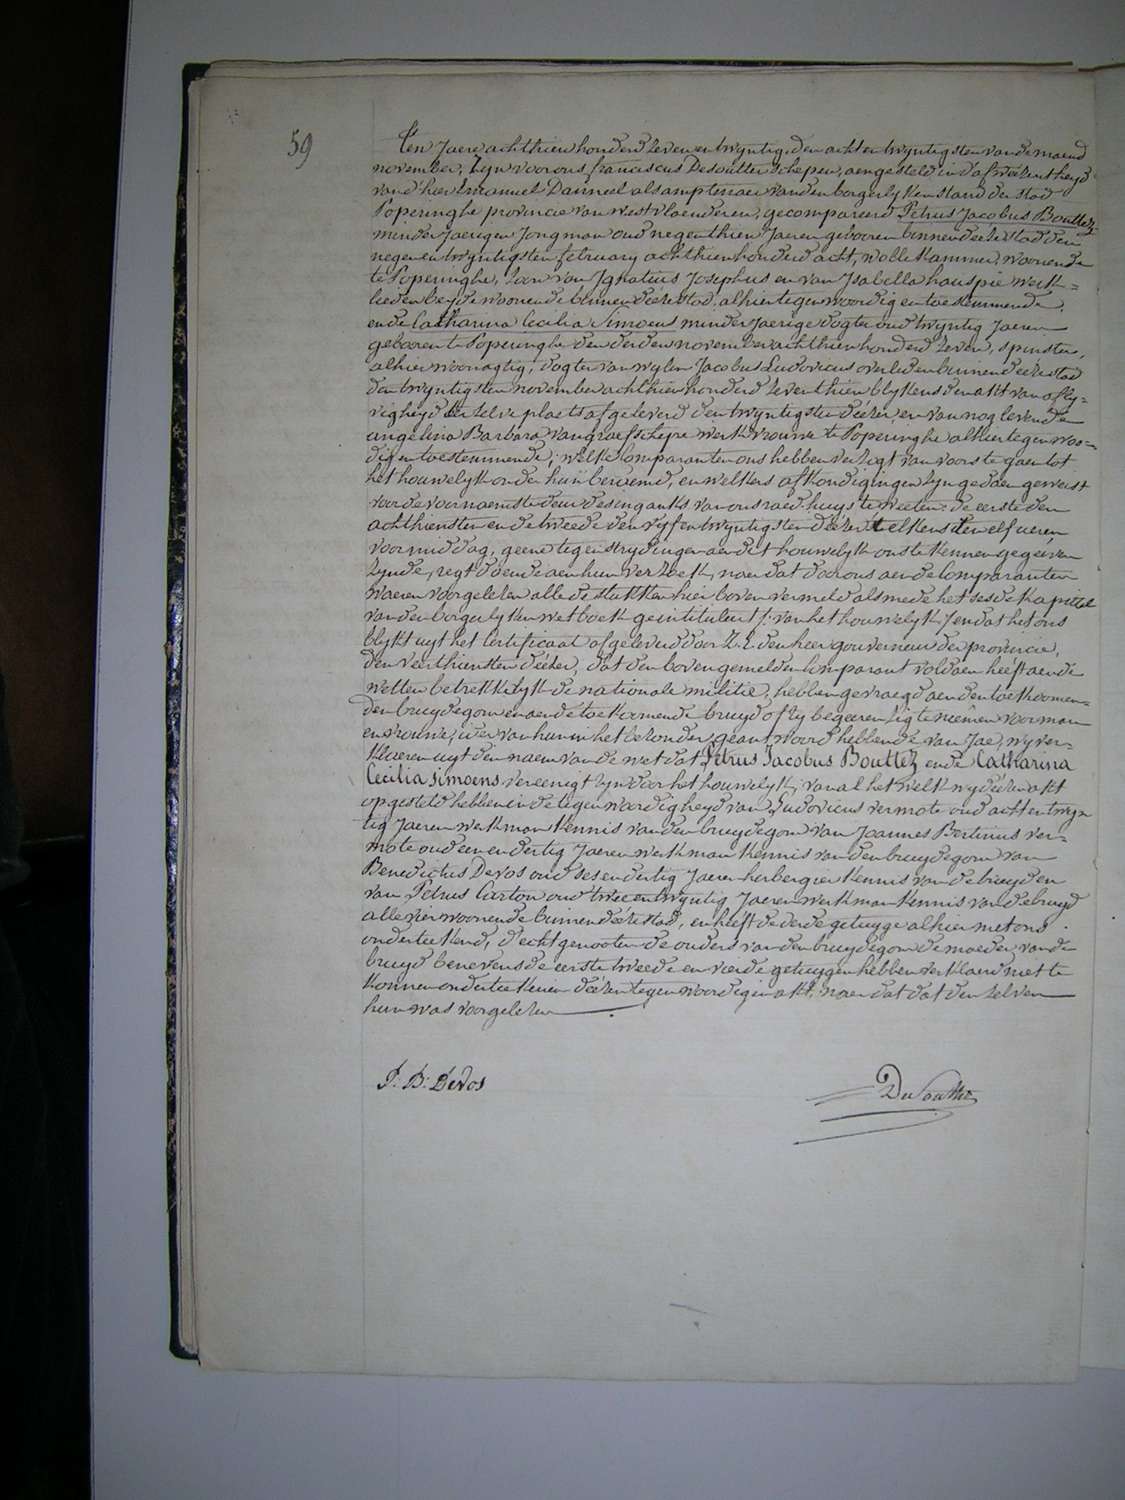 59
Ten Jaere achthien honderd zeven en twyntig, den acht en twyntigsten van de maend
november, zyn voor ons franciscus Desoutter schepen, aengesteld in d'afwezentheyd
van d'heer Emanuel Danneel als amptenaer van den borgerlyken stand der stad
Poperinghe provincie van westvlaenderen, gecompareerd Petrus Jacobus Bouttez
minderjaerigen Jongman oud negenthien Jaeren gebooren binnen deeze stad den
negen en twyntigsten february achthien honderd acht, wollekammer, woonende
te Poperinghe, zoon van Ignatius Josephus en van Isabella hauspie werk=
lieden beyde woonende binnen deéze stad, alhier tegenwoordig en toestemmende,
ende Catharina Cecilia Simoens minderjaerige dogter oud twyntig Jaeren
gebooren te Poperinghe den derden november achthien honderd zeven, spinster,
alhier woonagtig, dogter van wylen Jacobus Ludovicus overleden binnen deéze stad
den twyntigsten november achthien honderd zeventhien blykens den akt van afly=
vigheyd ter zelve plaets afgeleverd den twyntigsten deézer, en van nog levende
angelina Barbara vangraefschepe werkvrouwe te Poperinghe alhier tegenwoor=
dig en toestemmende; welke comparanten ons hebben verzogt van voorts te gaen tot
het houwelyk onder hun beraemd, en welkers afkondigingen zyn gedaen geweest
voor de voornaemste deur des ingank's van ons raed-huys te weeten: de eerste den
achthiensten en de tweede den vyf en twyntigsten deézer telkens ten elf ueren
voormiddag, geene tegenstrydingen aen dit houwelyk ons te kennen gegeéven
zynde, regt doende aen hun verzoek, naer dat door ons aen de comparanten
waeren voorgelezen alle de stukken hier boven vermeld als mede het sesde kapittel
van den borgerlyken wetboek geintituleert /: van het houwelyk :/ en dat het ons
blykt uyt het certificaat afgeleverd door Z.E. den heer gouverneur der provincie,
den veerthiensten deézer, dat den bovengemelden comparant voldaen heéft aen de
wetten betrekkelyk de nationale militie, hebben gevraegd aen den toekoomen=
den bruydegom en aen de toekoomende bruyd of zy begeeren zig te neémen voor man
en vrouwe; ider van hun in het bezonder geantwoord hebbende van Jae, wy ver=
klaeren uyt den naem van de wet dat Petrus Jacobus Bouttez ende Catharina
Cecilia simoens vereenigt zyn door het houwelyk; van al het welk wy deézen akt
opgesteld hebben in de tegenwoordigheyd van Ludovicus vermote oud acht en twyn
tig Jaeren werkman kennis van den bruydegom van Joannes Bertinus ver=
mote oud een en dertig Jaeren werkman kennis van den bruydegom van
Benedictus Devos oud ses en dertig Jaeren herbergier kennis van de bruyd en
van Petrus Carton oud twee en twyntig Jaeren werkman kennis van de bruyd
alle vier woonende binnen deéze stad, en heéft de derde getuyge alhier met ons
onderteekend, d'echtgenooten de ouders van den bruydegom de moeder van de
bruyd benevens de eerste tweede en vierde getuygen hebben verklaerd niet te
konnen onderteekenen deézen tegenwoordigen akt, naer dat dat den zelven
hun was voorgelezen
P. B: Devos
DeSoutter